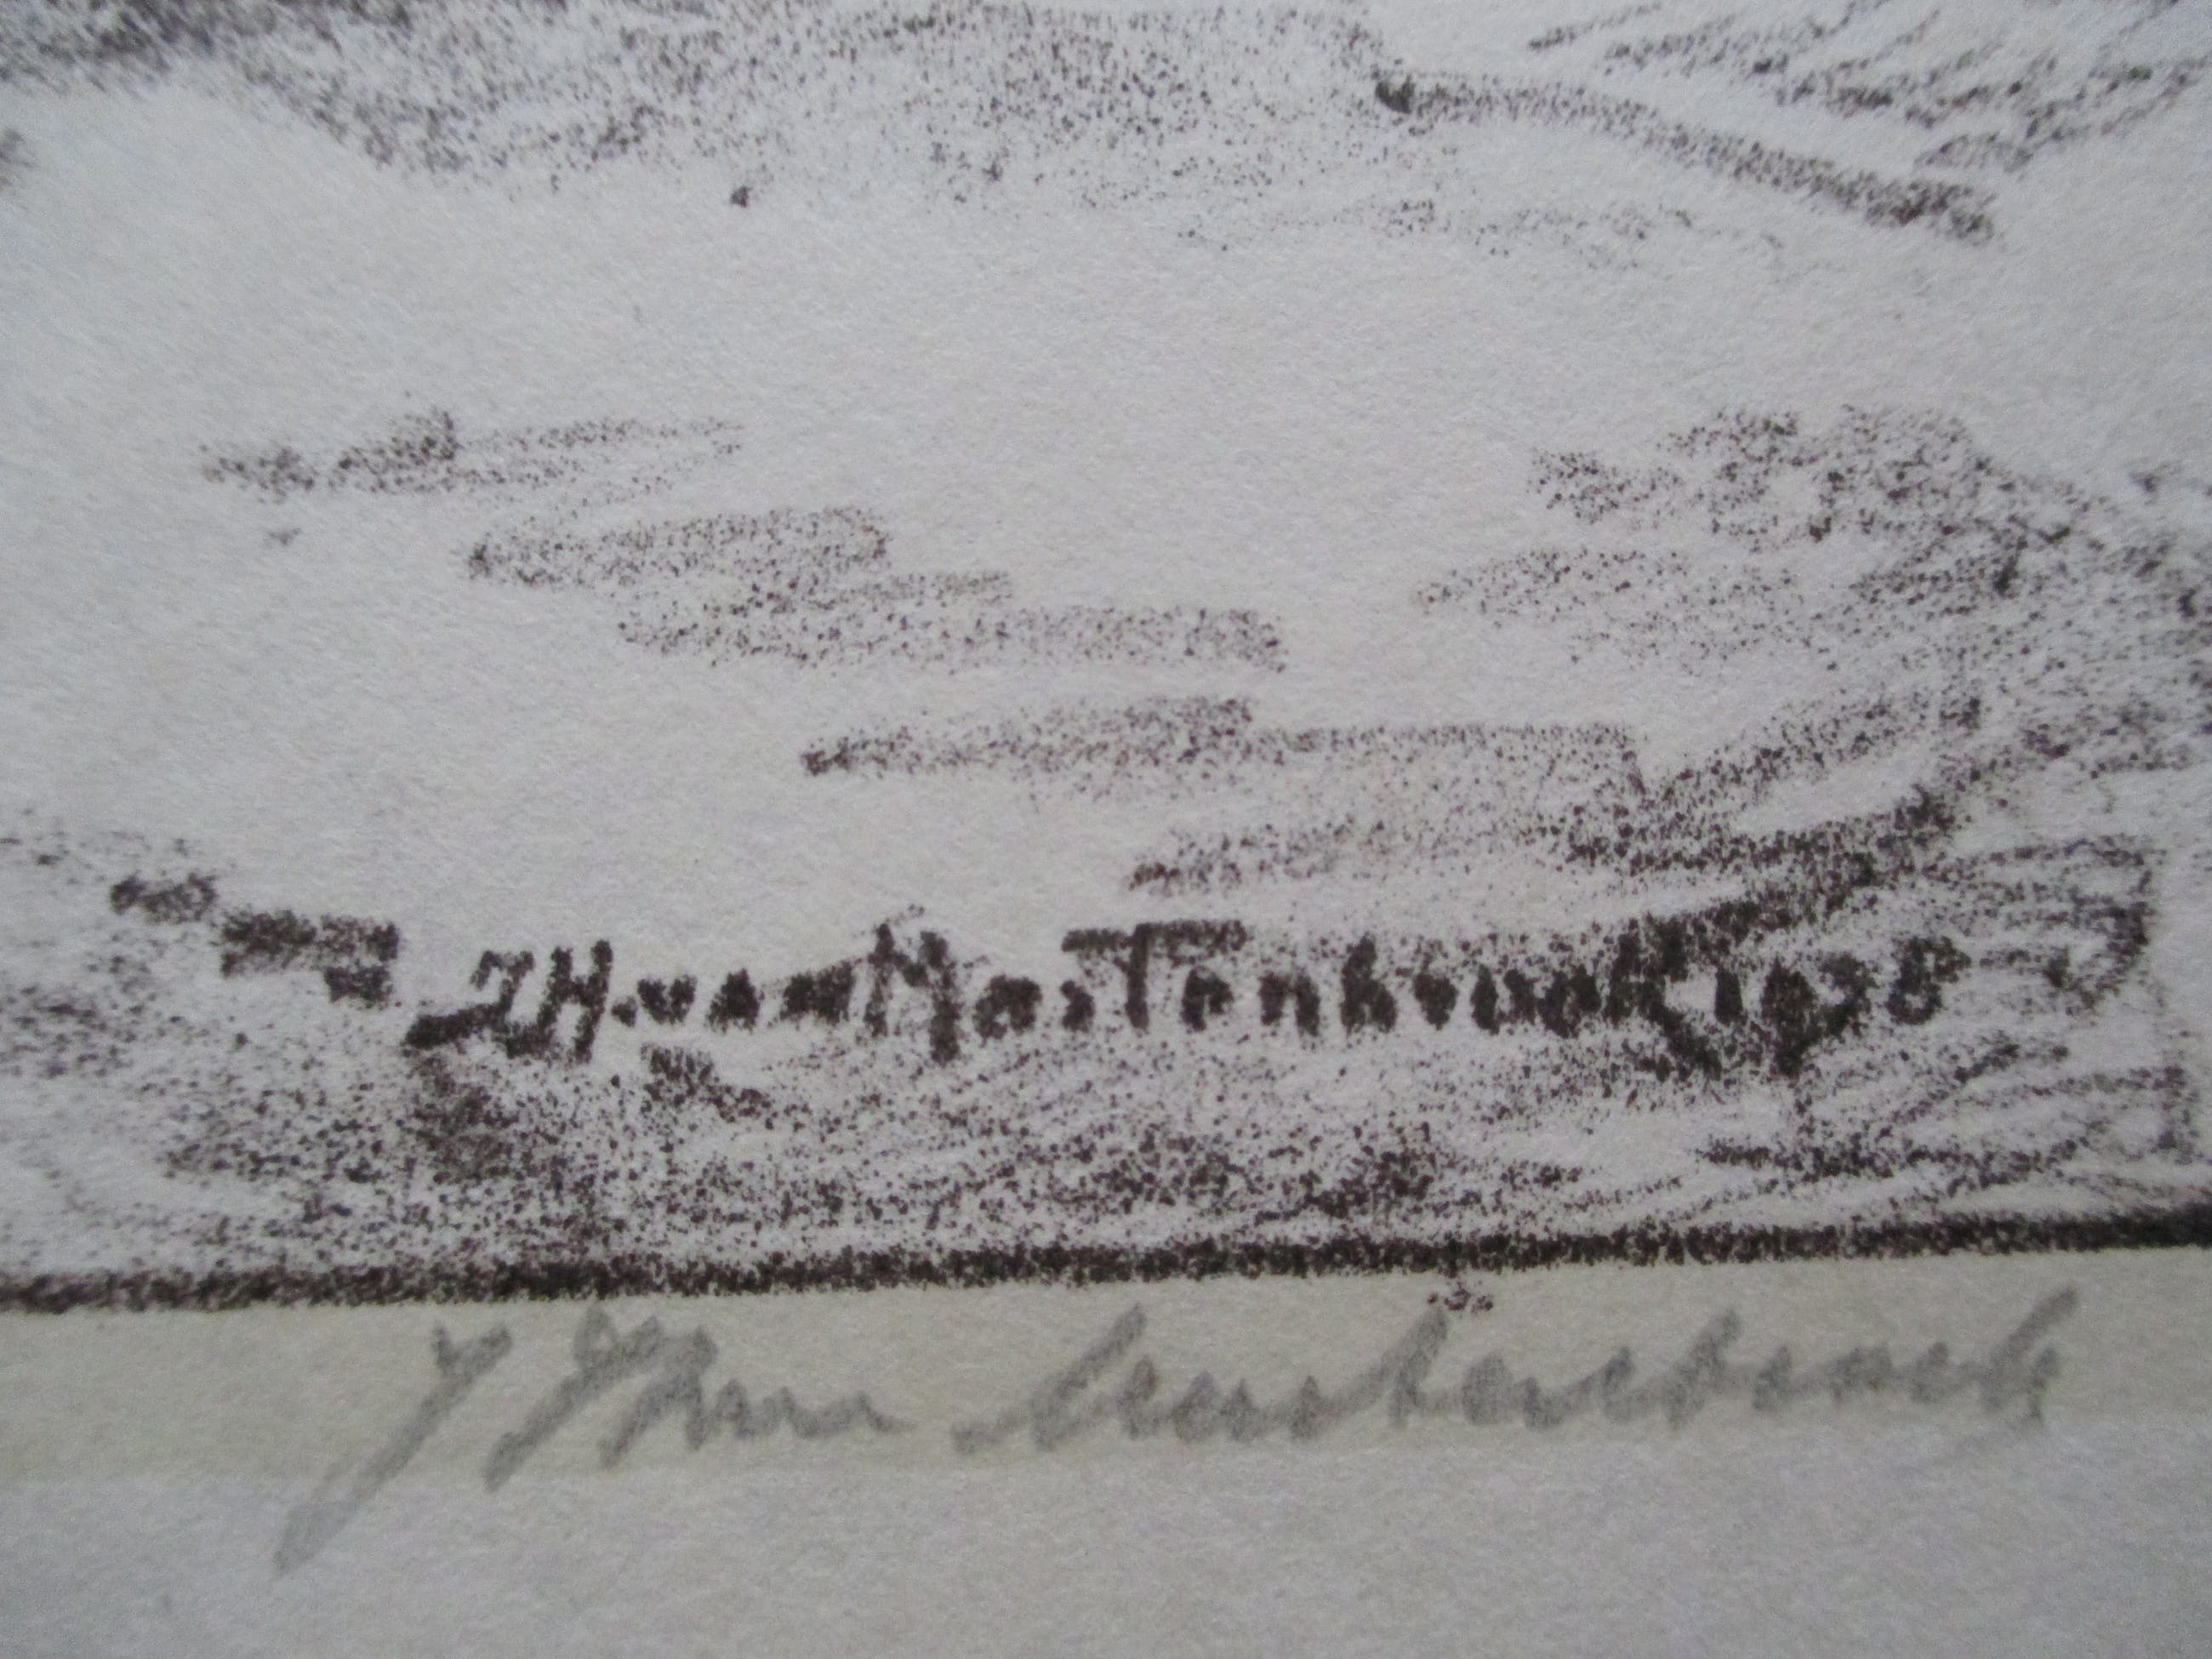 JH. van MasTenbroek 1938
J H van Mastenbroek